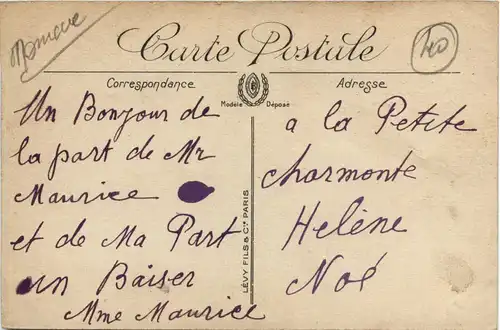 Monique
40
Carte Postale
Correspondance
Adresse
Modèle Déposé
Un Bonjour de
la part de Mr
Maurice
et de Ma Part
un Baiser
Mme Maurice
LÉVY FILS & Cie PARIS
a la Petite
charmonte
Helène
Noé